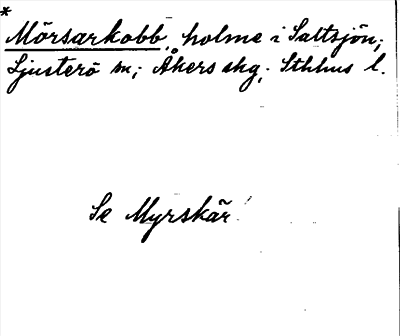 *
Mörsarkobb, holme i Saltsjön;
Ljusterö sn; Åkers skg; Sthlms l.
Se Myrskär